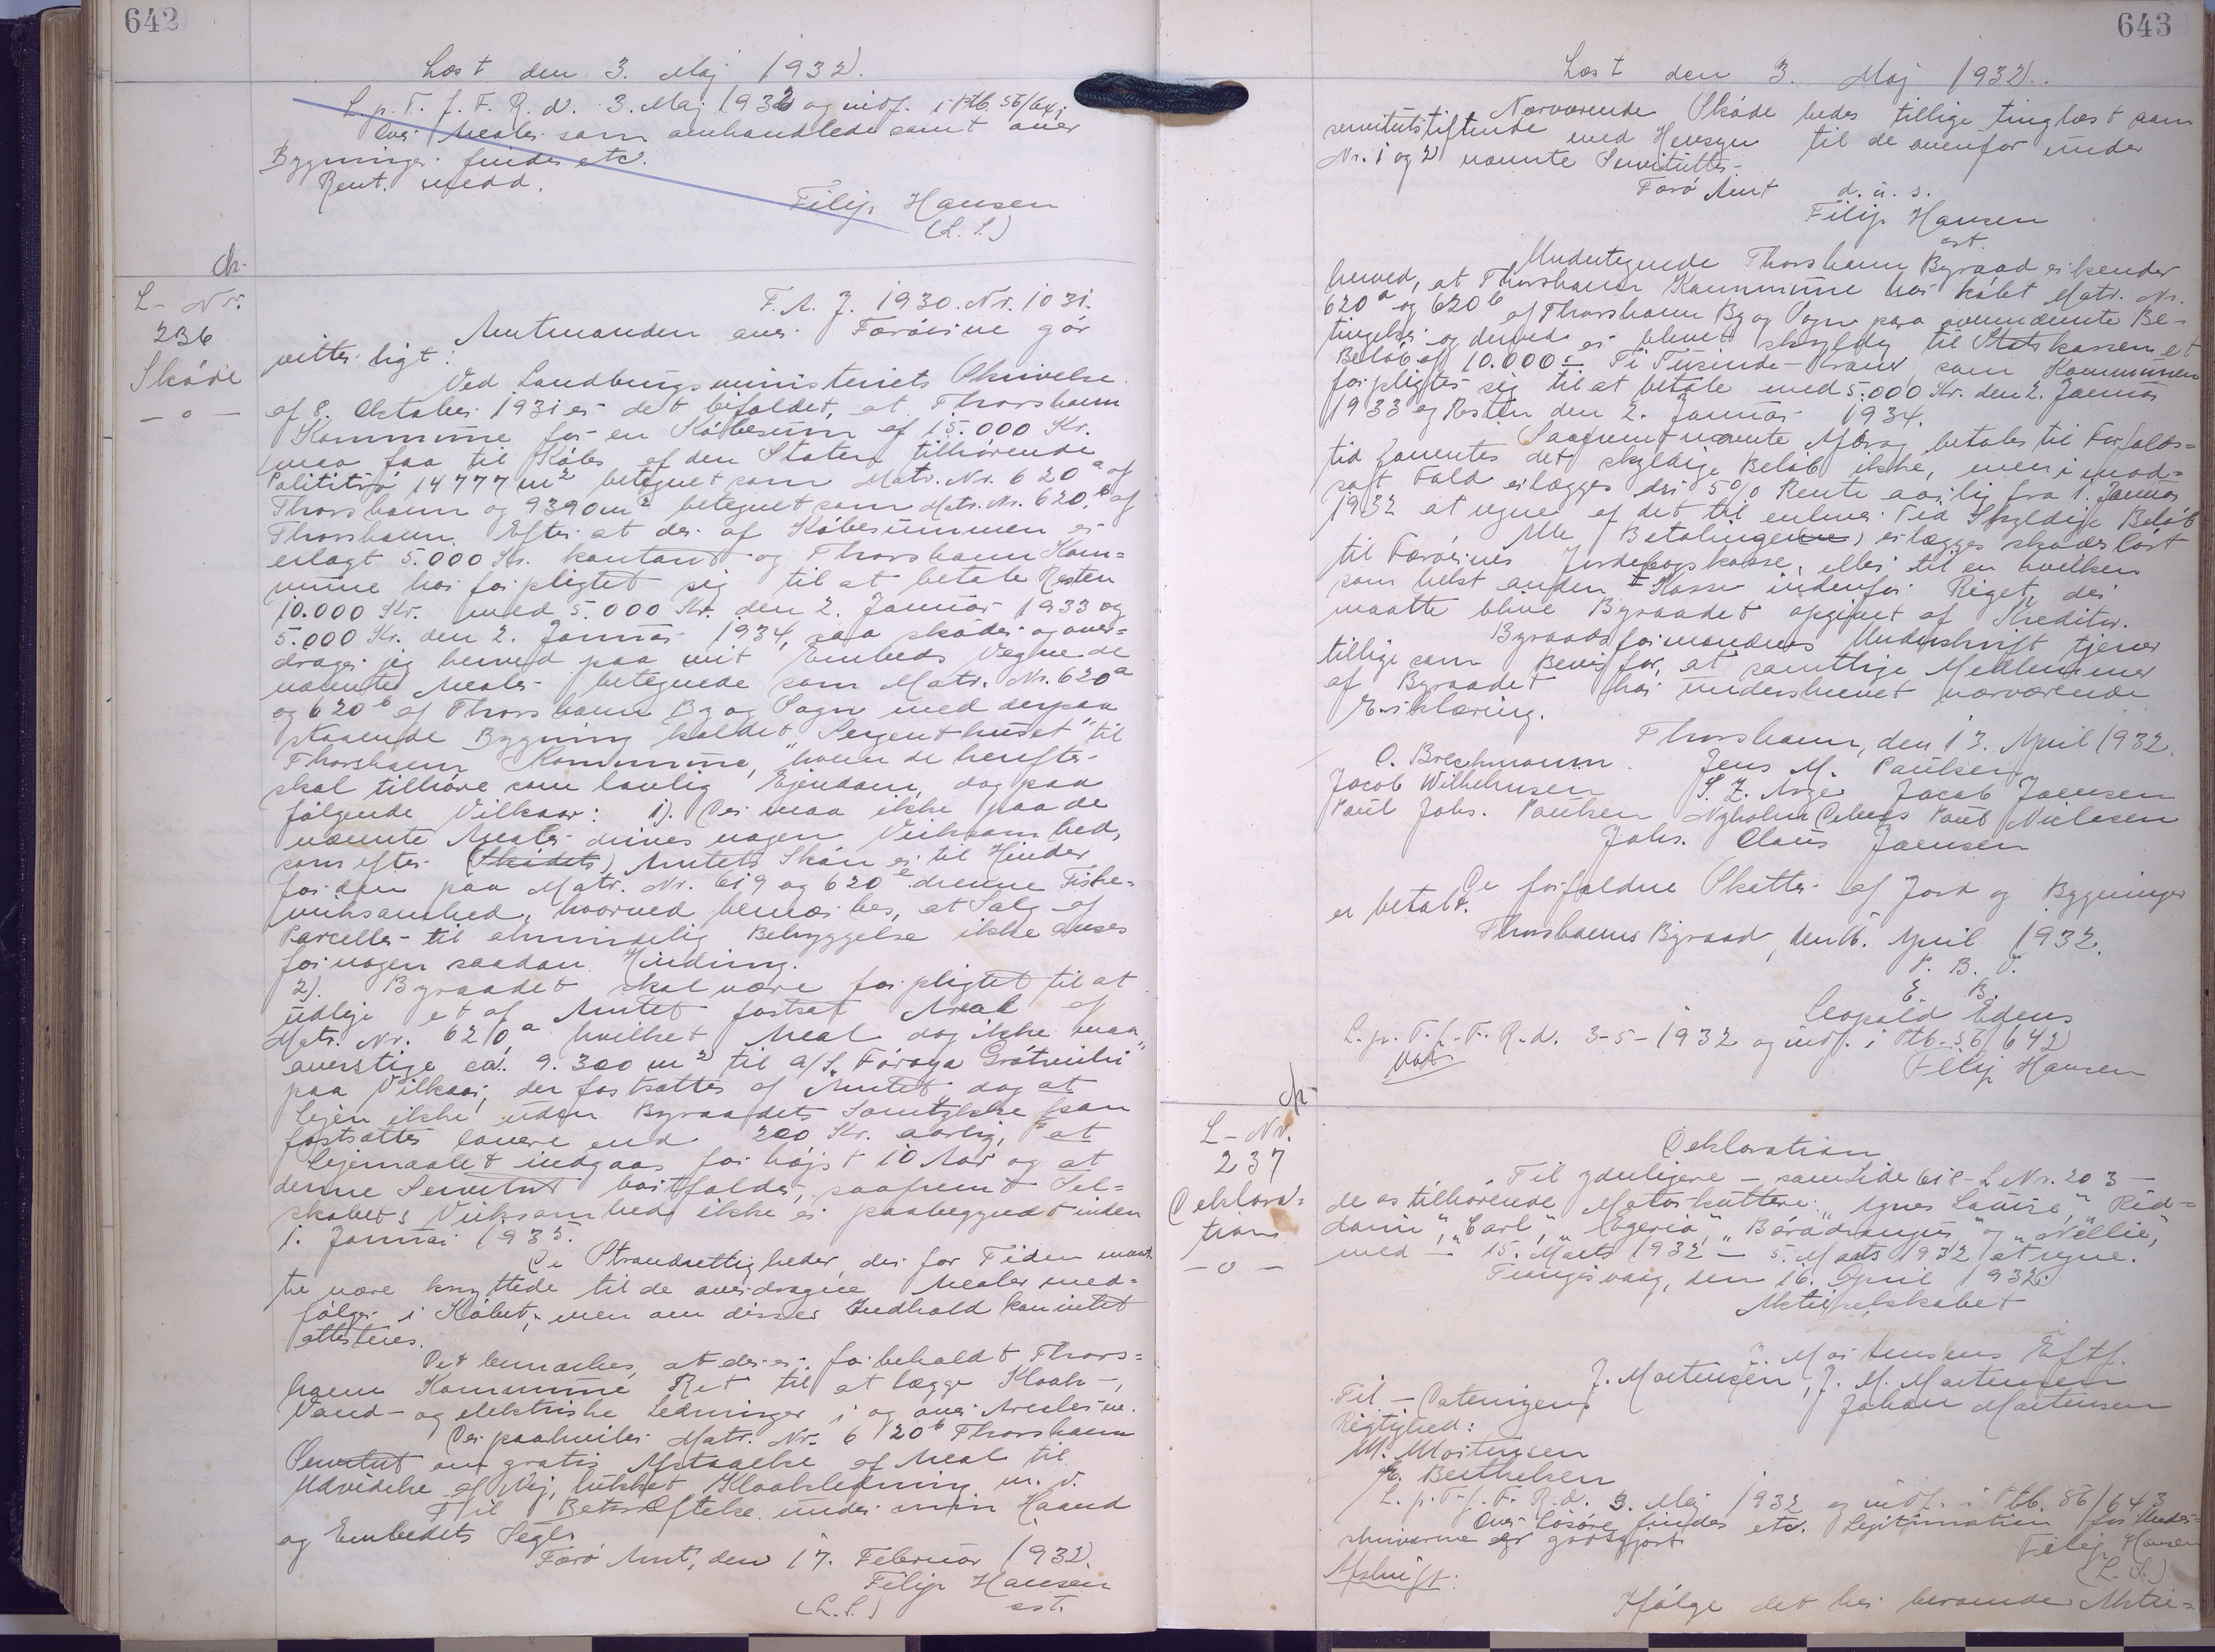 642
Læst den 3. Maj 1932.
L.p.T.f.F.R.d. 3. Maj 1932 og indf. i Ptb. 56/641
Over Arealer som omhandlede samt over
Bygninger findes etc.
Rent. medd.
Filip Hansen
(L.S.)
ch.
L-Nr.
236
Skøde
— o —
F. A. J. 1930. Nr. 1031.
Amtmanden over Færøerne gør
vitterligt:
Ved Landbrugsministeriets Skrivelse
af 8. Oktober 1931 er det bifaldet, at Thorshavn
Kommune for en Købesum af 15.000 Kr.
maa faa til Købs af den Staten tilhørende
14777 m² betegnet som Matr. Nr. 620a af
Thorshavn og 9390 m² betegnet som Matr. Nr. 620b af
Thorshavn. Efter at der af Købesummen er
erlagt 5.000 Kr. kontant og Thorshavn Kom=
mune har forpligtet sig til at betale Resten
10.000 Kr. med 5.000 Kr. den 2. Januar 1933 og
5.000 Kr. den 2. Januar 1934, saa skøder og over=
drager jeg herved paa mit Embeds Vegne de
nævnte Arealer betegnede som Matr. Nr. 620a
og 620b af Thorshavn By og Sogn med derpaa
staaende Bygning kaldet "Sergenthuset" til
Thorshavn Kommune, hvem de herefter
skal tilhøre som lovlig Ejendom, dog paa
følgende Vilkaar: 1). Der maa ikke paa de
nævnte Arealer drives nogen Virksomhed,
som efter (Skødets) Amtets Skøn er til Hinder
for den paa Matr. Nr. 619 og 620e drevne Fiske=
virksomhed, hvorved bemærkes, at Salg af
Parceller til almindelig Bebyggelse ikke anses
for nogen saadan Hindring.
2). Byraadet skal være forpligtet til at
udleje et af Amtet fastsat Areal af
Matr. Nr. 620a hvilket Areal dog ikke maa
overstige ca. 9.300 m² til A/S "Føroya Grótvirki"
paa Vilkaar, der fastsættes af Amtet, dog at
Lejen ikke uden Byraadets Samtykke kan
fastsættes lavere end 200 Kr. aarlig, at
Lejemaalet indgaas for højst 10 Aar og at
denne Servitut bortfalder, saafremt Sel=
skabets Virksomhed ikke er paabegyndt inden
1. Januar 1935.
De Strandrettigheder, der for Tiden maat=
te være knyttede til de overdragne Arealer med=
følger i Købet, men om disses Indhold kan intet
attesteres.
Det bemærkes, at der er forbeholdt Thors=
havn Kommune Ret til at lægge Kloak-,
Vand- og elektriske Ledninger i og over Arealerne.
Der paahviler Matr. Nr. 620b Thorshavn
Servitut om gratis Afstaaelse af Areal til
Udvidelse af Vej, lukket Kloakledning m. v.
Til Bekræftelse under min Haand
og Embedets Segl.
Færø Amt, den 17. Februar 1932.
Filip Hansen
cst.
(L.S.)
643
Læst den 3. Maj 1932.
Nærværende Skøde bedes tillige tinglæst som
servitutstiftende med Hensyn til de ovenfor under
Nr. 1 og 2 nævnte Servitutter.
Færø Amt d. u. s.
Filip Hansen
cst.
Undertegnede Thorshavn Byraad erkender
herved, at Thorshavn Kommune har købt Matr. Nr.
620a og 620b af Thorshavn By og Sogn paa ovennævnte Be=
tingelser og derved er bleven skyldig til Statskassen et
Beløb af 10.000 - Ti Tusinde - Kroner, som Kommunen
forpligter sig til at betale med 5.000 Kr. den 2. Januar
1933 og Resten den 2. Januar 1934.
Saafremt nævnte Afdrag betales til Forfalds=
tid forrentes det skyldige Beløb ikke, men i mod=
sat Fald erlægges der 5% Rente aarlig fra 1. Januar
1932 at regne af det til enhver Tid skyldige Beløb
Alle Betalinger(ne) erlægges skadesløst
til Færøernes Jordebogskasse, eller til en hvilken
som helst anden Kasse indenfor Riget, der
maatte blive Byraadet opgivet af Kreditor.
Byraadsformandens Underskrift tjener
tillige som Bevis for, at samtlige Medlemmer
af Byraadet har underskrevet nærværende
Erklæring.
Thorshavn, den 13. April 1932.
O. Brechmann. Jens M. Paulsen
Jacob Wilhelmsen S. Z. Arge Jacob Joensen
Poul Johs. Poulsen Nyholm Debess Poul Nielesen
Johs. Claus Joensen
De forfaldne Skatter af Jord og Bygninger
er betalt.
Thorshavns Byraad, den 16. April 1932.
P. B. V.
E. B.
Leopold Edens
L.p.T.f.F.R.d. 3-5-1932 og indf. i Ptb. 56/642
Filip Hansen
ch
L-Nr.
237
Deklara=
tion
— o —
Deklaration
Til yderligere — samtlide 618 - L Nr. 203 —
de os tilhørende Motorkuttere: "Agnes Louise", "Rid=
darin", "Carl", "Egeria", "Børadrangur" og "Nellie",
med — 15. Marts 1932 — 5. Marts 1932 at regne.
Trangisvaag, den 16. April 1932.
Aktieselskabet
J. Mortensens Eftf.
J. Mortensen, J. M. Mortensen
Johan Mortensen
Til Dateringens
Rigtighed:
M. Mortensen
E. Berthelsen
L.p.T.f.F.R.d. 3. Maj 1932 og indf. i Ptb. 56/643
Over Løsøre findes etc. Legitimation for Under=
skriverne er godtgjort.
Filip Hansen
(L.S.)
Afskrift:
Ifølge det her beroende Aktie=